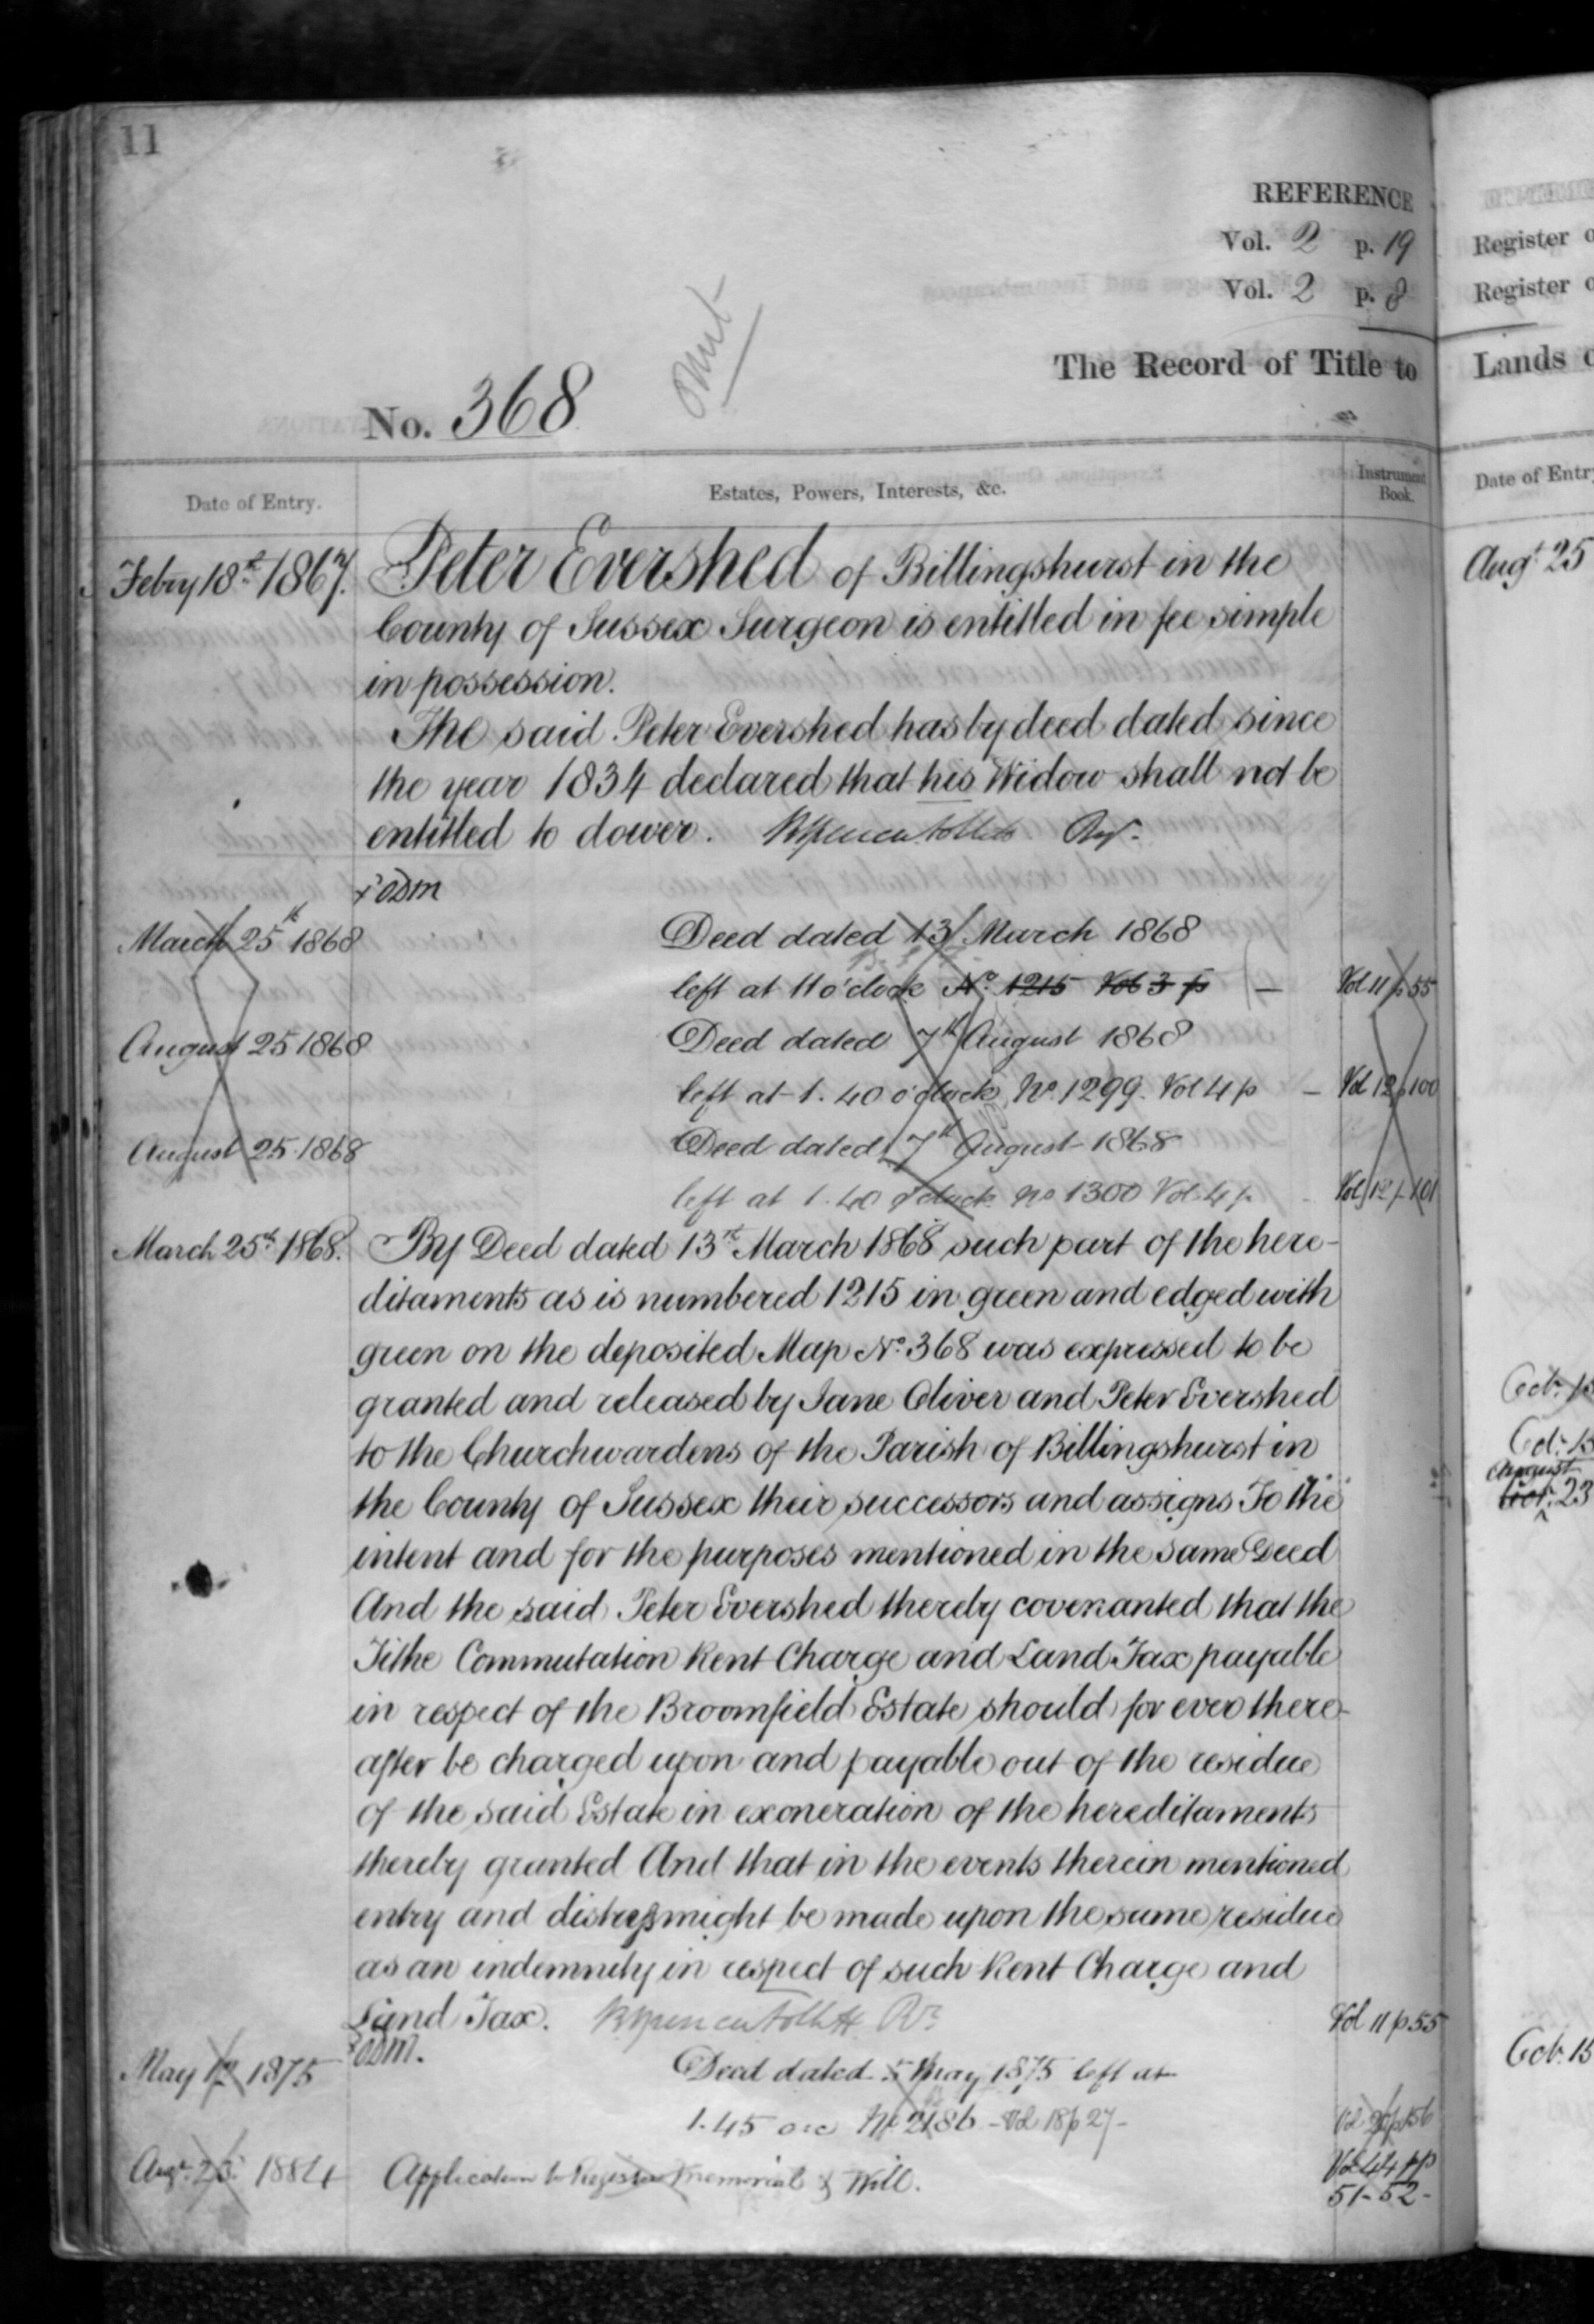 11
REFERENCE
Vol. 2 p. 19
Vol. 2 p. 8
The Record of Title to
omit
No. 368
Date of Entry.
Estates, Powers, Interests, &c.
Instrument Book.
Febry 18th 1867. Peter Evershed of Billingshurst in the
County of Sussex Surgeon is entitled in fee simple
in possession.
The said Peter Evershed has by deed dated since
the year 1834 declared that his Widow shall not be
entitled to dower.
ODM
March 25th 1868 Deed dated 13 March 1868
left at 11 o'clock No. 1215 Vol 3 p — Vol 11 p 55
August 25 1868 Deed dated 7th August 1868
left at 1.40 o'clock No. 1299. Vol 4 p — Vol 12 p 100
August 25 1868 Deed dated 7th August 1868
left at 1.40 o'clock No 1300 Vol 4 p Vol 12 p 101
March 25th 1868. By Deed dated 13th March 1868 such part of the here-
ditaments as is numbered 1215 in green and edged with
green on the deposited Map No. 368 was expressed to be
granted and released by Jane Oliver and Peter Evershed
to the Churchwardens of the Parish of Billingshurst in
the County of Sussex their successors and assigns To the
intent and for the purposes mentioned in the same Deed
And the said Peter Evershed thereby covenanted that the
Tithe Commutation Rent Charge and Land Tax payable
in respect of the Broomfield Estate should for ever there-
after be charged upon and payable out of the residue
of the said Estate in exoneration of the hereditaments
thereby granted And that in the events therein mentioned
entry and distress might be made upon the same residue
as an indemnity in respect of such Rent Charge and
Land Tax. Vol 11 p 55
ODM.
May 12 1875 Deed dated 5 May 1875 left at
1.45 No 2186 - Vol 18 p 27 -
Augt. 23 1884 Application to Register memorial of Will. Vol 44 pp
51-52-
Register o
Register o
Lands o
Date of Entry
Augt. 25
Oct. 15
August
23
Oct. 15